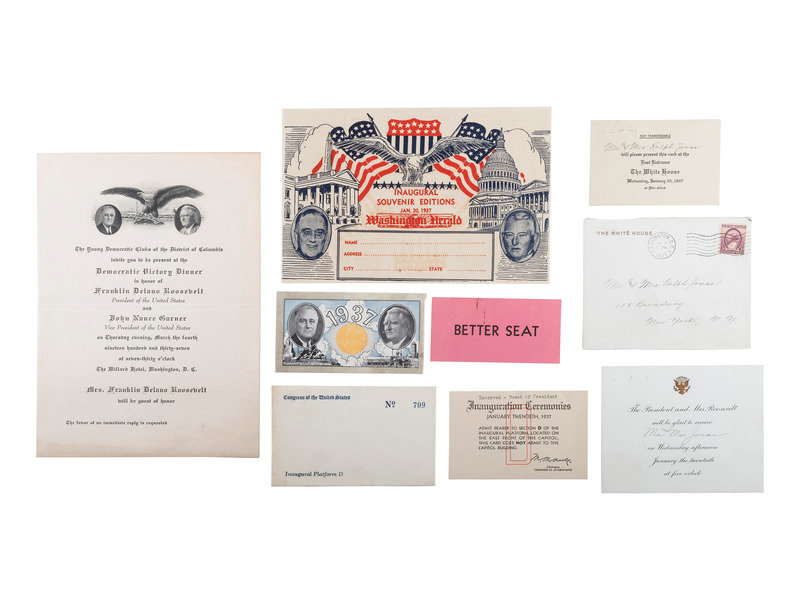 The Young Democratic Clubs of the District of Columbia
invite you to be present at the
Democratic Victory Dinner
in honor of
Franklin Delano Roosevelt
President of the United States
and
John Nance Garner
Vice President of the United States
on Thursday evening, March the fourth
nineteen hundred and thirty-seven
at seven-thirty o'clock
The Willard Hotel, Washington, D. C.
Mrs. Franklin Delano Roosevelt
will be guest of honor
The favor of an immediate reply is requested
INAUGURAL
SOUVENIR EDITIONS
JAN. 20, 1937
Washington Herald
NAME
ADDRESS
CITY STATE
1937
BETTER SEAT
Congress of the United States
No 709
Inaugural Platform D
Reserved - Guest of President
Inauguration Ceremonies
JANUARY TWENTIETH, 1937
ADMIT BEARER TO SECTION D OF THE
INAUGURAL PLATFORM, LOCATED ON
THE EAST FRONT OF THE CAPITOL.
THIS CARD DOES NOT ADMIT TO THE
CAPITOL BUILDING.
Chairman
Committee on Arrangements
NOT TRANSFERABLE
Mr & Mrs Ralph Jonas
will please present this card at the
East Entrance
The White House
Wednesday, January 20, 1937
at five o'clock
THE WHITE HOUSE
1937
Mr & Mrs Ralph Jonas
115 Broadway
New York, N.Y.
The President and Mrs. Roosevelt
will be glad to receive
Mr & Mrs Jonas
on Wednesday afternoon
January the twentieth
at five o'clock